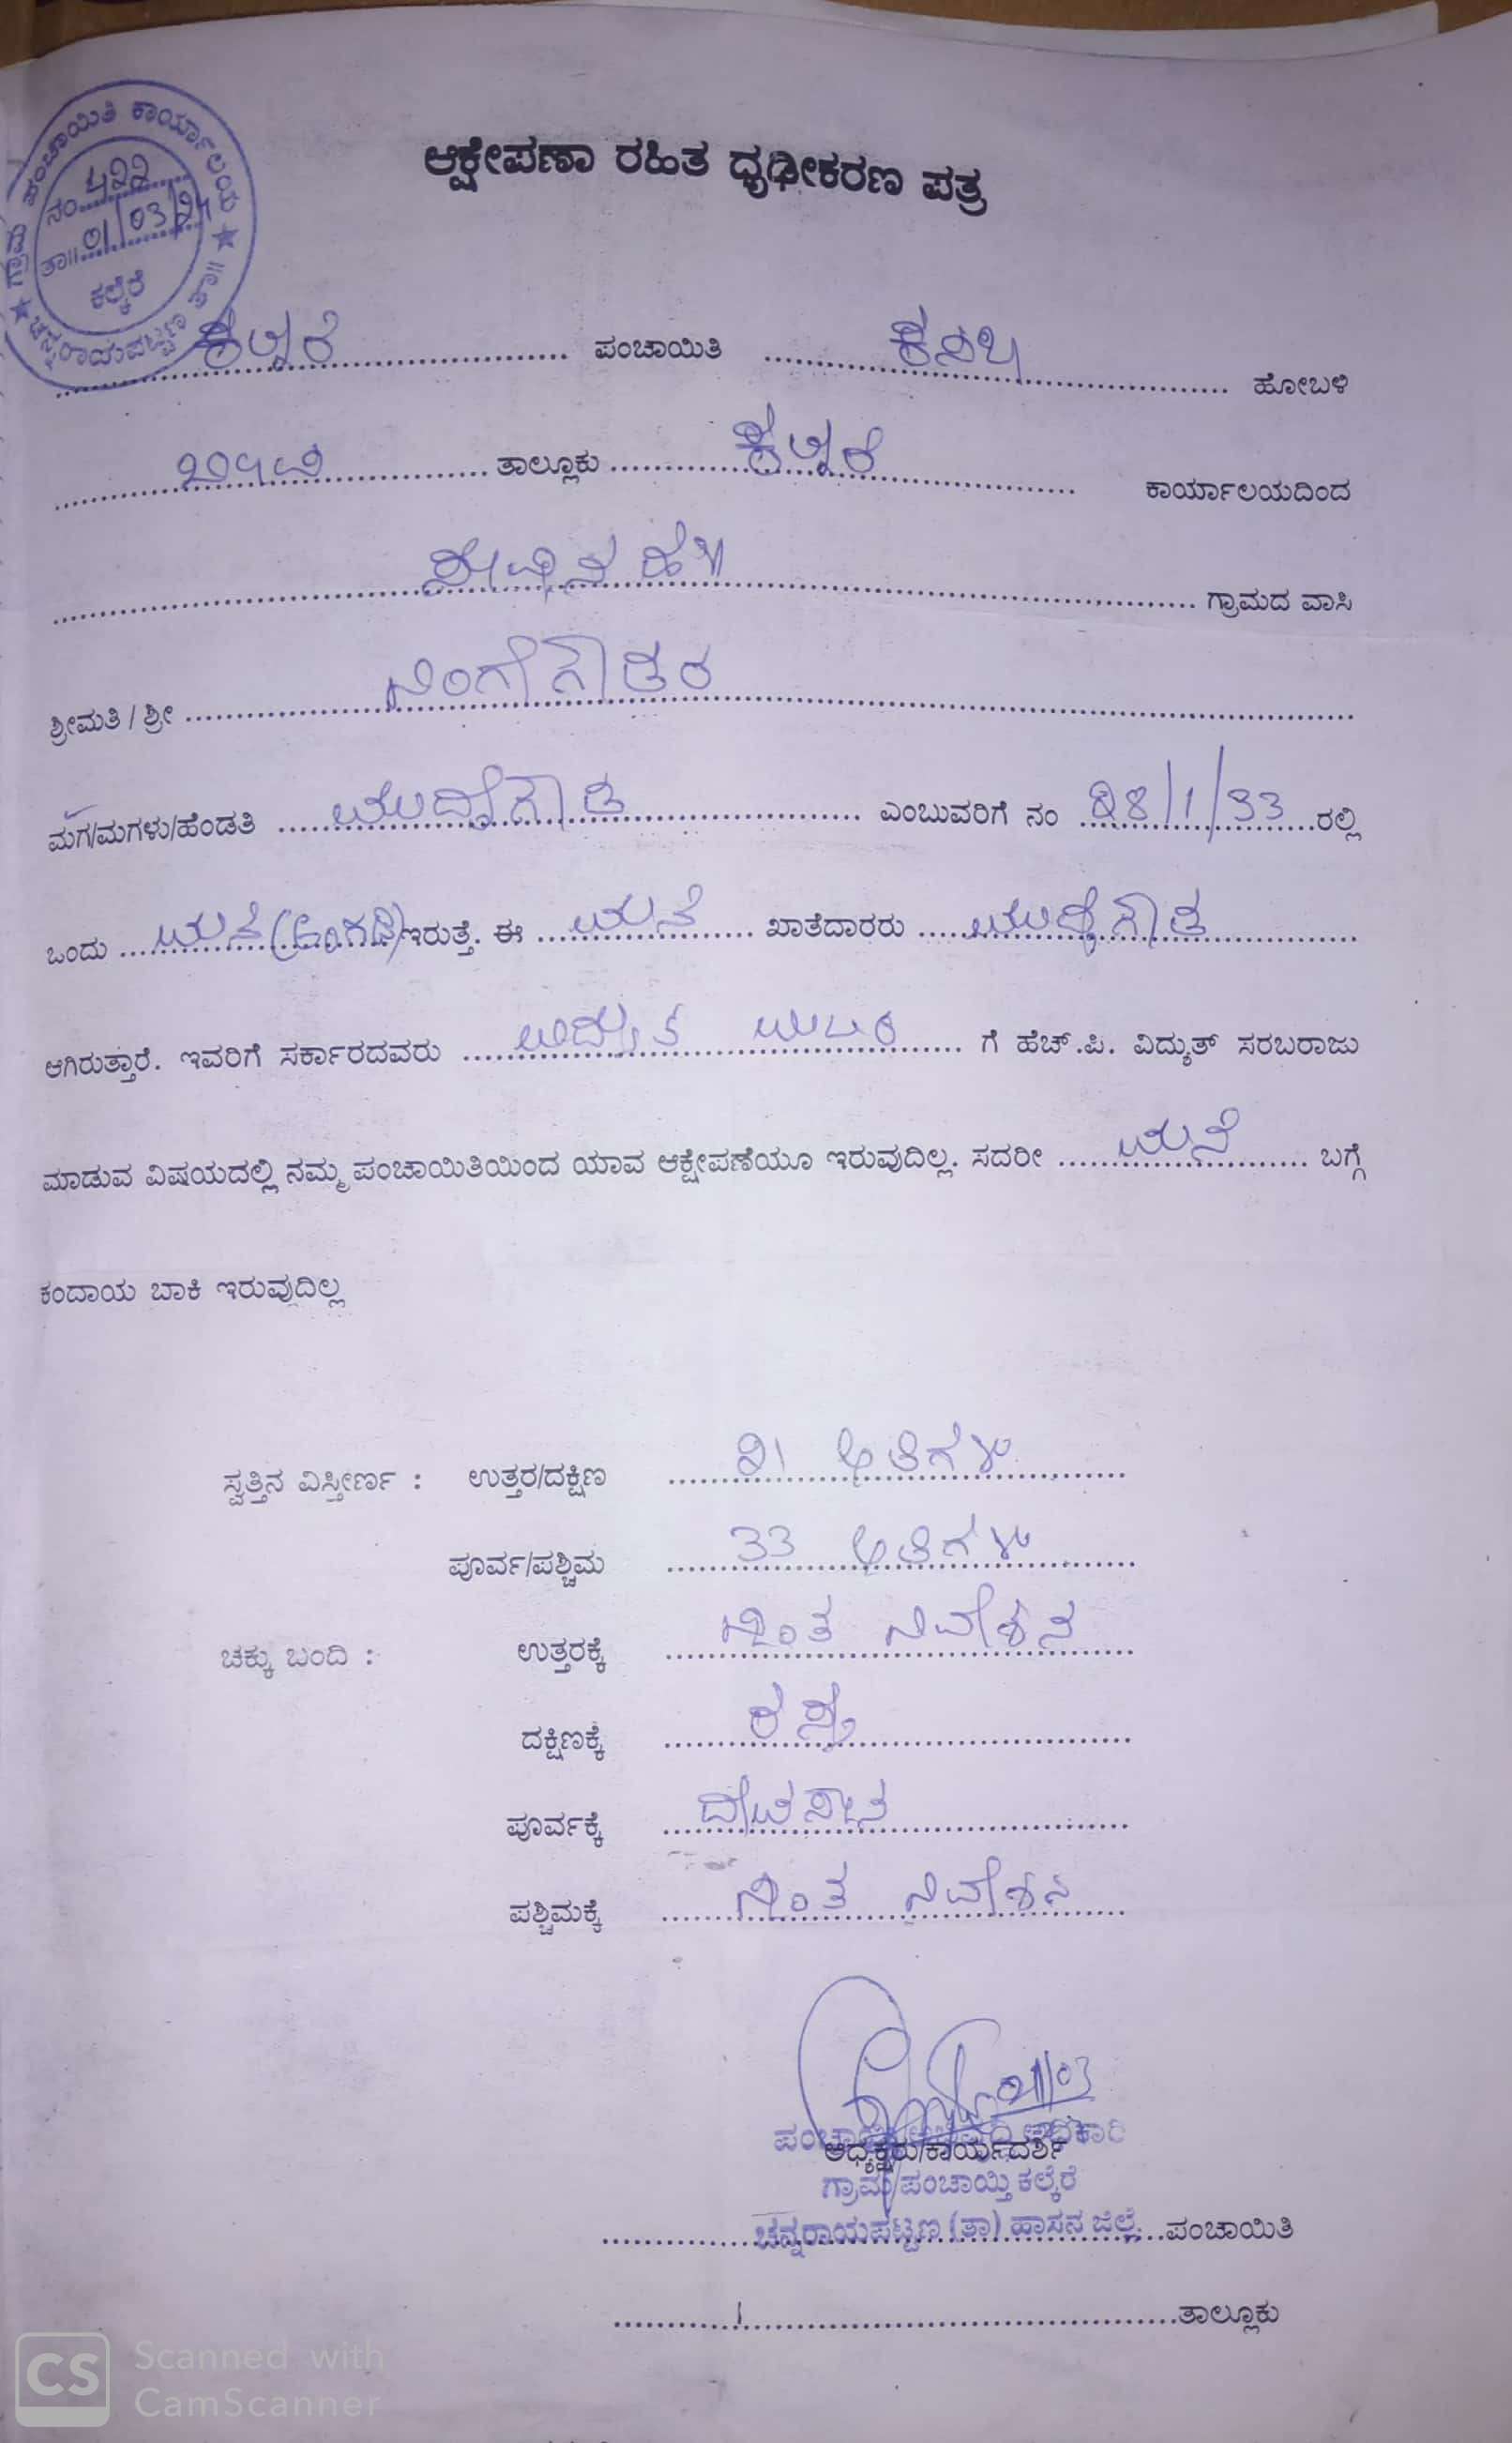 ಗ್ರಾಮ ಪಂಚಾಯಿತಿ ಕಾರ್ಯಾಲಯ
ನಂ 422
ತಾ|| 01/03/24
ಕಲ್ಕೆರೆ
ಚನ್ನರಾಯಪಟ್ಟಣ ತಾ||
ಆಕ್ಷೇಪಣಾ ರಹಿತ ಧೃಢೀಕರಣ ಪತ್ರ
ಕಲ್ಕೆರೆ ಪಂಚಾಯಿತಿ ಕಸಬಾ ಹೋಬಳಿ
ತಾಲ್ಲೂಕು ಕಲ್ಕೆರೆ ಕಾರ್ಯಾಲಯದಿಂದ
ಗ್ರಾಮದ ವಾಸಿ
ಶ್ರೀಮತಿ / ಶ್ರೀ ನಿಂಗೇಗೌಡರ
ಮಗ/ಮಗಳು/ಹೆಂಡತಿ ಎಂಬುವರಿಗೆ ನಂ 28/1/33 ರಲ್ಲಿ
ಒಂದು ಮನೆ (ಅಂಗಡಿ) ಇರುತ್ತೆ. ಈ ಮನೆ ಖಾತೆದಾರರು
ಆಗಿರುತ್ತಾರೆ. ಇವರಿಗೆ ಸರ್ಕಾರದವರು ಗೆ ಹೆಚ್.ಪಿ. ವಿದ್ಯುತ್ ಸರಬರಾಜು
ಮಾಡುವ ವಿಷಯದಲ್ಲಿ ನಮ್ಮ ಪಂಚಾಯಿತಿಯಿಂದ ಯಾವ ಆಕ್ಷೇಪಣೆಯೂ ಇರುವುದಿಲ್ಲ. ಸದರೀ ಮನೆ ಬಗ್ಗೆ
ಕಂದಾಯ ಬಾಕಿ ಇರುವುದಿಲ್ಲ
ಸ್ವತ್ತಿನ ವಿಸ್ತೀರ್ಣ : ಉತ್ತರ/ದಕ್ಷಿಣ 21 ಅಡಿಗಳು
ಪೂರ್ವ/ಪಶ್ಚಿಮ 33 ಅಡಿಗಳು
ಚಕ್ಕು ಬಂದಿ : ಉತ್ತರಕ್ಕೆ ಸ್ವಂತ ನಿವೇಶನ
ದಕ್ಷಿಣಕ್ಕೆ ರಸ್ತೆ
ಪೂರ್ವಕ್ಕೆ ದೇವಸ್ಥಾನ
ಪಶ್ಚಿಮಕ್ಕೆ ಸ್ವಂತ ನಿವೇಶನ
ಪಂಚಾಯಿತಿ ಅಭಿವೃದ್ಧಿ ಅಧಿಕಾರಿ
ಅಧ್ಯಕ್ಷರು/ಕಾರ್ಯದರ್ಶಿ
ಗ್ರಾಮ ಪಂಚಾಯ್ತಿ ಕಲ್ಕೆರೆ
ಚನ್ನರಾಯಪಟ್ಟಣ (ತಾ) ಹಾಸನ ಜಿಲ್ಲೆ ಪಂಚಾಯಿತಿ
ತಾಲ್ಲೂಕು
CS Scanned with
CamScanner